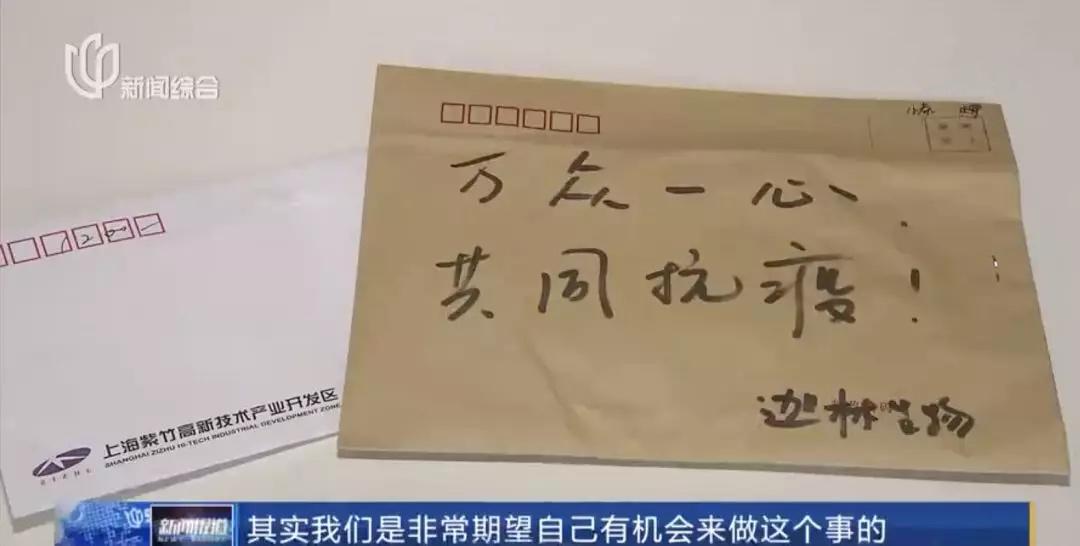 新闻综合
万众一心!
共同抗疫!
迦林生物
1200
上海紫竹高新技术产业开发区
SHANGHAI ZIZHU HI-TECH INDUSTRIAL DEVELOPMENT ZONE
ZIZHU
新闻报道
其实我们是非常期望自己有机会来做这个事的